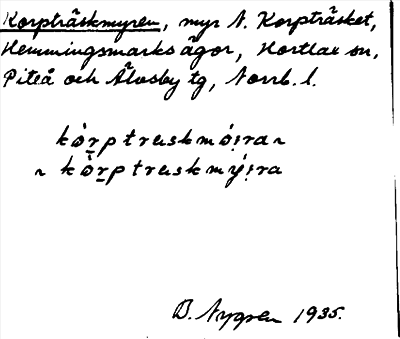 Korpträskmyren, myr N. Korpträsket,
Hemmingsmarks ägor, Hortlax sn,
Piteå och Älvsby tg, Norrb. l.
kòrptrɛskmóira ~
~ kòrptrɛskmýira
D. Nygren 1935.